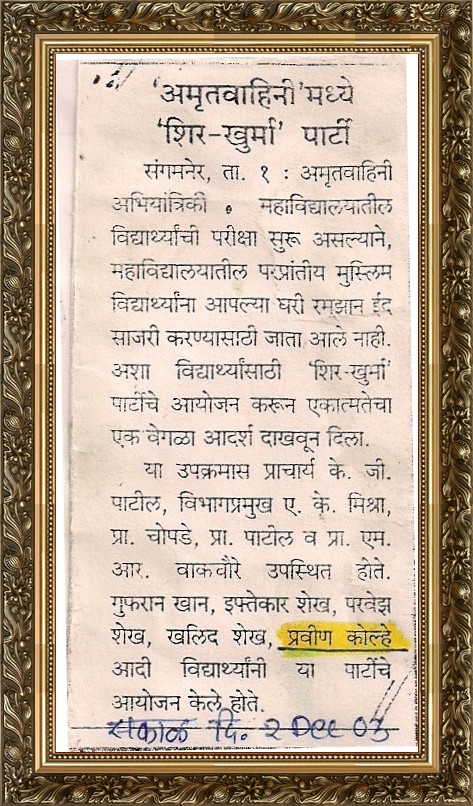 ‘अमृतवाहिनी’मध्ये
‘शिर-खुर्मा’ पार्टी
संगमनेर, ता. १ : अमृतवाहिनी
अभियांत्रिकी महाविद्यालयातील
विद्यार्थ्यांची परीक्षा सुरू असल्याने,
महाविद्यालयातील परप्रांतीय मुस्लिम
विद्यार्थ्यांना आपल्या घरी रमझान ईद
साजरी करण्यासाठी जाता आले नाही.
अशा विद्यार्थ्यांसाठी ‘शिर-खुर्मा’
पार्टीचे आयोजन करून एकात्मतेचा
एक वेगळा आदर्श दाखवून दिला.
या उपक्रमास प्राचार्य के. जी.
पाटील, विभागप्रमुख ए. के. मिश्रा,
प्रा. चोपडे, प्रा. पाटील व प्रा. एम.
आर. वाकचौरे उपस्थित होते.
गुफरान खान, इफ्तेकार शेख, परवेझ
शेख, खलिद शेख, प्रवीण कोल्हे
आदी विद्यार्थ्यांनी या पार्टीचे
आयोजन केले होते.
सकाळ दि. 2 Dec 03